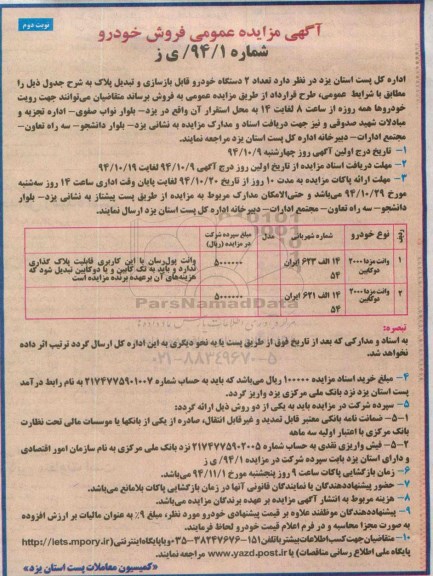 نوبت دوم
آگهی مزایده عمومی فروش خودرو
شماره ۹۴/۱/ ی ز
اداره کل پست استان یزد در نظر دارد تعداد ۲ دستگاه خودرو قابل بازسازی و تبدیل پلاک به شرح جدول ذیل را
مطابق با شرایط عمومی، طرح قرارداد از طریق مزایده عمومی به فروش برساند متقاضیان می‌توانند جهت رویت
خودروها همه روزه از ساعت ۸ لغایت ۱۴ به محل استقرار آن واقع در یزد- بلوار نواب صفوی- اداره تجزیه و
مبادلات شهید صدوقی و نیز جهت دریافت اسناد و مدارک مزایده به نشانی یزد- بلوار دانشجو- سه راه تعاون-
مجتمع ادارات- دبیرخانه اداره کل پست استان یزد مراجعه نمایند.
۱- تاریخ درج اولین آگهی روز چهارشنبه ۹۴/۱۰/۹
۲- مهلت دریافت اسناد مزایده از تاریخ اولین روز درج آگهی ۹۴/۱۰/۹ لغایت ۹۴/۱۰/۱۹
۳- مهلت ارائه پاکات مزایده به مدت ۱۰ روز از تاریخ ۹۴/۱۰/۲۰ لغایت پایان وقت اداری ساعت ۱۴ روز سه‌شنبه
مورخ ۹۴/۱۰/۲۹ می‌باشد و حتی‌الامکان مدارک مربوط به مزایده از طریق پست پیشتاز به نشانی یزد- بلوار
دانشجو- سه راه تعاون- مجتمع ادارات- دبیرخانه اداره کل پست استان یزد ارسال نمایند.
ردیف نوع خودرو شماره شهربانی مدل مبلغ سپرده شرکت در مزایده (ریال)
۱ وانت مزدا ۲۰۰۰ دوکابین ۱۴ الف ۶۳۳ ایران ۵۴ ۵۰۰۰۰۰۰ وانت پول‌رسان با این کاربری قابلیت پلاک گذاری ندارد و باید به تک کابین و یا دوکابین تبدیل شود که هزینه‌های آن برعهده برنده مزایده است
۲ وانت مزدا ۲۰۰۰ دوکابین ۱۴ الف ۶۲۱ ایران ۵۴ ۵۰۰۰۰۰۰
ParsNamadData
۰۲۱-۸۸۳۴۹۶۷۰-۵
تبصره:
به اسناد و مدارکی که بعد از تاریخ فوق از طریق پست یا به نحو دیگری به این اداره کل ارسال گردد ترتیب اثر داده
نخواهد شد.
۴- مبلغ خرید اسناد مزایده ۱۰۰۰۰۰ ریال می‌باشد که باید به حساب شماره ۲۱۷۴۷۷۵۹۰۱۰۰۷ به نام رابط درآمد
پست استان یزد نزد بانک ملی مرکزی یزد واریز گردد.
۵- سپرده شرکت در مزایده باید به یکی از دو روش ذیل ارائه گردد:
۵-۱- ضمانت نامه بانکی معتبر قابل تمدید و غیرقابل انتقال، صادره از یکی از بانکها یا موسسات مالی تحت نظارت
بانک مرکزی با اعتبار اولیه سه ماهه
۵-۲- فیش واریزی نقدی به حساب شماره ۲۱۷۴۷۷۵۹۰۲۰۰۵ نزد بانک ملی مرکزی به نام سازمان امور اقتصادی
و دارای استان یزد بابت سپرده شرکت در مزایده ۹۴/۱/ ی ز
۶- زمان بازگشایی پاکات ساعت ۹ روز پنجشنبه مورخ ۹۴/۱۱/۱ می‌باشد.
۷- حضور پیشنهاددهندگان یا نمایندگان قانونی آنها در زمان بازگشایی پاکات بلامانع می‌باشد.
۸- هزینه مربوط به انتشار آگهی مزایده بر عهده برندگان مزایده می‌باشد.
۹- پیشنهاددهندگان موظفند علاوه بر قیمت پیشنهادی خودرو مورد نظر، مبلغ ۹٪ به عنوان مالیات بر ارزش افزوده
به صورت مجزا محاسبه و در فرم اعلام قیمت خودرو لحاظ فرمایند.
۱۰- متقاضیان جهت کسب اطلاعات بیشتر با تلفن ۱۵۱-۳۸۲۴۷۶۷۶-۰۳۵ و یا پایگاه اینترنتی (http://iets.mporg.ir
پایگاه ملی اطلاع رسانی مناقصات) یا www.yazd.post.ir مراجعه نمایند.
«کمیسیون معاملات پست استان یزد»